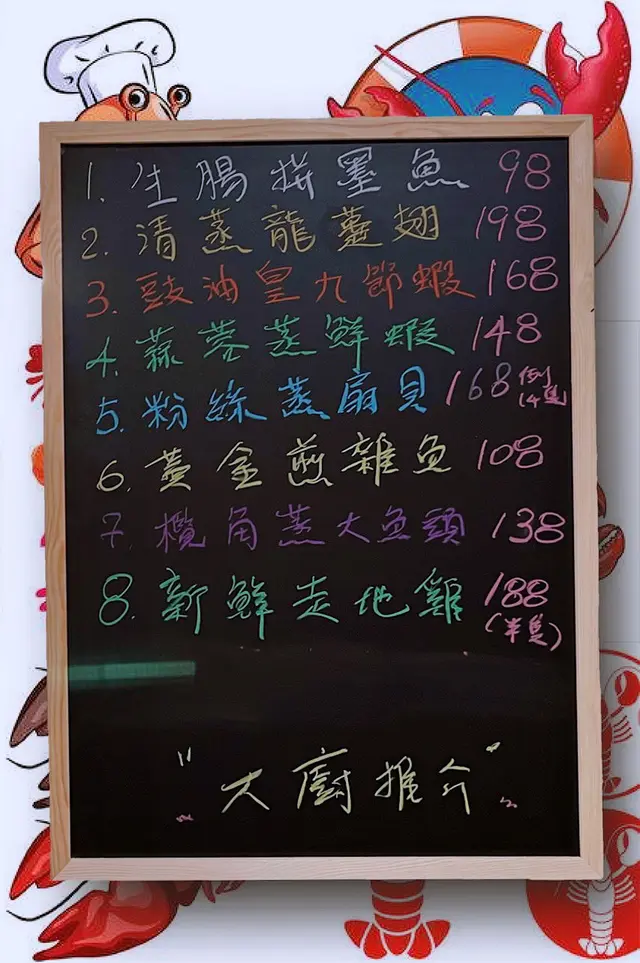 1. 生腸拼墨魚 98
2. 清蒸龍躉翅 198
3. 豉油皇九節蝦 168
4. 蒜蓉蒸鮮蝦 148
5. 粉絲蒸扇貝 168 例14隻
6. 黃金煎雜魚 108
7. 欖角蒸大魚頭 138
8. 新鮮走地雞 188
(半隻)
"大廚推介"